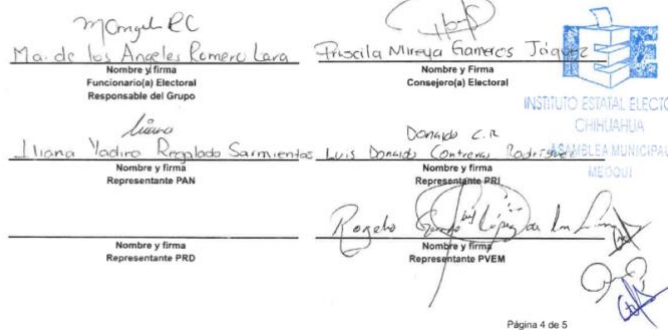 MAngeles RC
Ma. de los Angeles Romero Lara
Nombre y firma
Funcionario(a) Electoral
Responsable del Grupo
Priscila Mireya Gameros Jáquez
Nombre y Firma
Consejero(a) Electoral
INSTITUTO ESTATAL ELECTO
CHIHUAHUA
ASAMBLEA MUNICIPAL
MEOQUI
Iliana Yadira Regalado Sarmientos
Nombre y firma
Representante PAN
Donaldo C.R
Luis Donaldo Contreras Rodríguez
Nombre y firma
Representante PRI
Nombre y firma
Representante PRD
Rogelio López de
Nombre y firma
Representante PVEM
Página 4 de 5